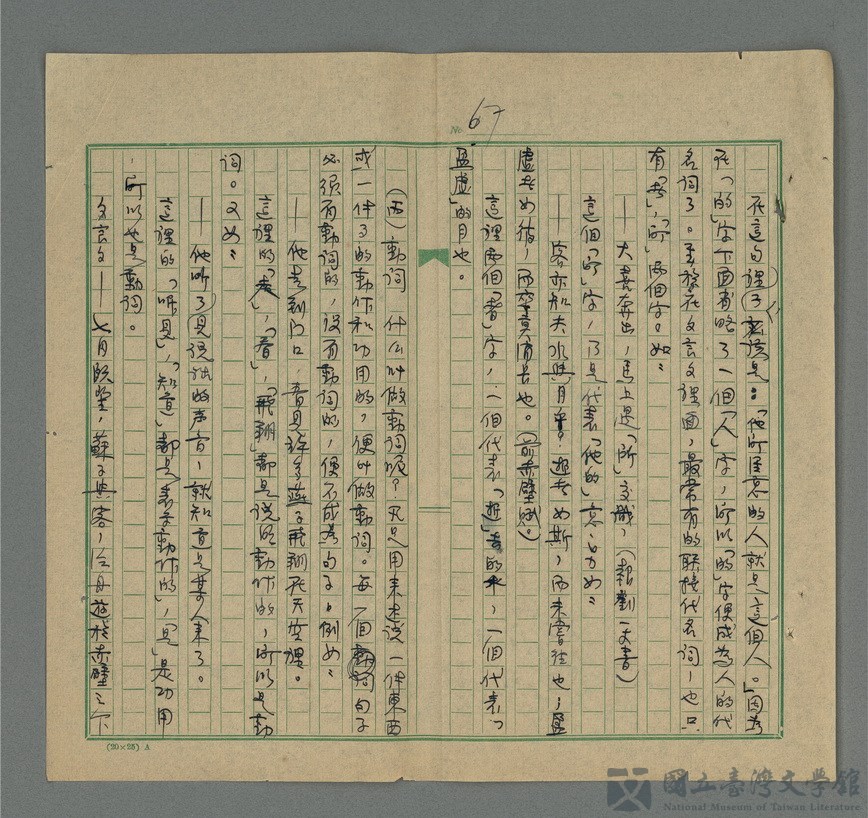 No. 67
在這句裡了應該是:「他所注意的人就是這個人。」因為
在「的」字下面省略了一個「人」字,所以「的」字便成為人的代
名詞了。至於在文言文裡面,最常有的聯接代名詞,也只
有「者」,「所」兩個字。如:
——大喜奔出,馬上是「所」交識,(報劉一丈書)
這個「所」字,乃是代表「他的」意。又如:
——客亦知夫水與月乎?逝者如斯,而未嘗往也,盈
虛者如彼,而卒莫消長也。(前赤壁賦)
這裡兩個「者」字,一個代表「逝」去的水,一個代表「
盈虛」的月也。
(丙)動詞 什么叫做動詞呢?凡是用來述說一件東西
或一件事的動作和功用的,便叫做動詞。每一個句子
必須有動詞的,沒有動詞的,便不成為句子。例如:
——他走到門口,看見許多燕子飛翔在天空裡。
這裡的「走」,「看」,「飛翔」都是說明動作的,所以是動
詞。又如:
——他听了見說話的声音,就知道是某人來了。
這裡的「听見」,「知道」都是表示動作的,「是」是功用
,所以也是動詞。
文言文——七月既望,蘇子與客,泛舟遊於赤壁之下
(20×25) A
國立臺灣文學館
National Museum of Taiwan Literature